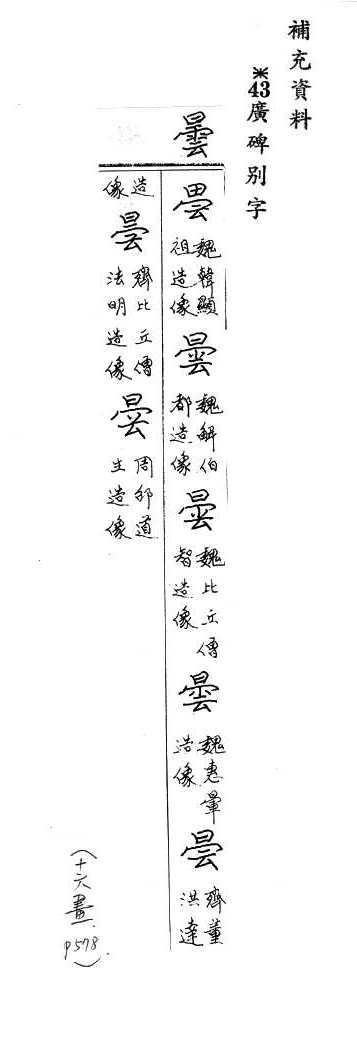 補充資料
※43廣碑别字
曇
昙 魏韓顯祖造像 曇 魏解伯都造像 曇 魏比丘僧智造像 曇 魏惠暈造像 曇 齊董洪達
造像 曇 齊比丘僧法明造像 昙 周邠道生造像
(十六畫. P578.)